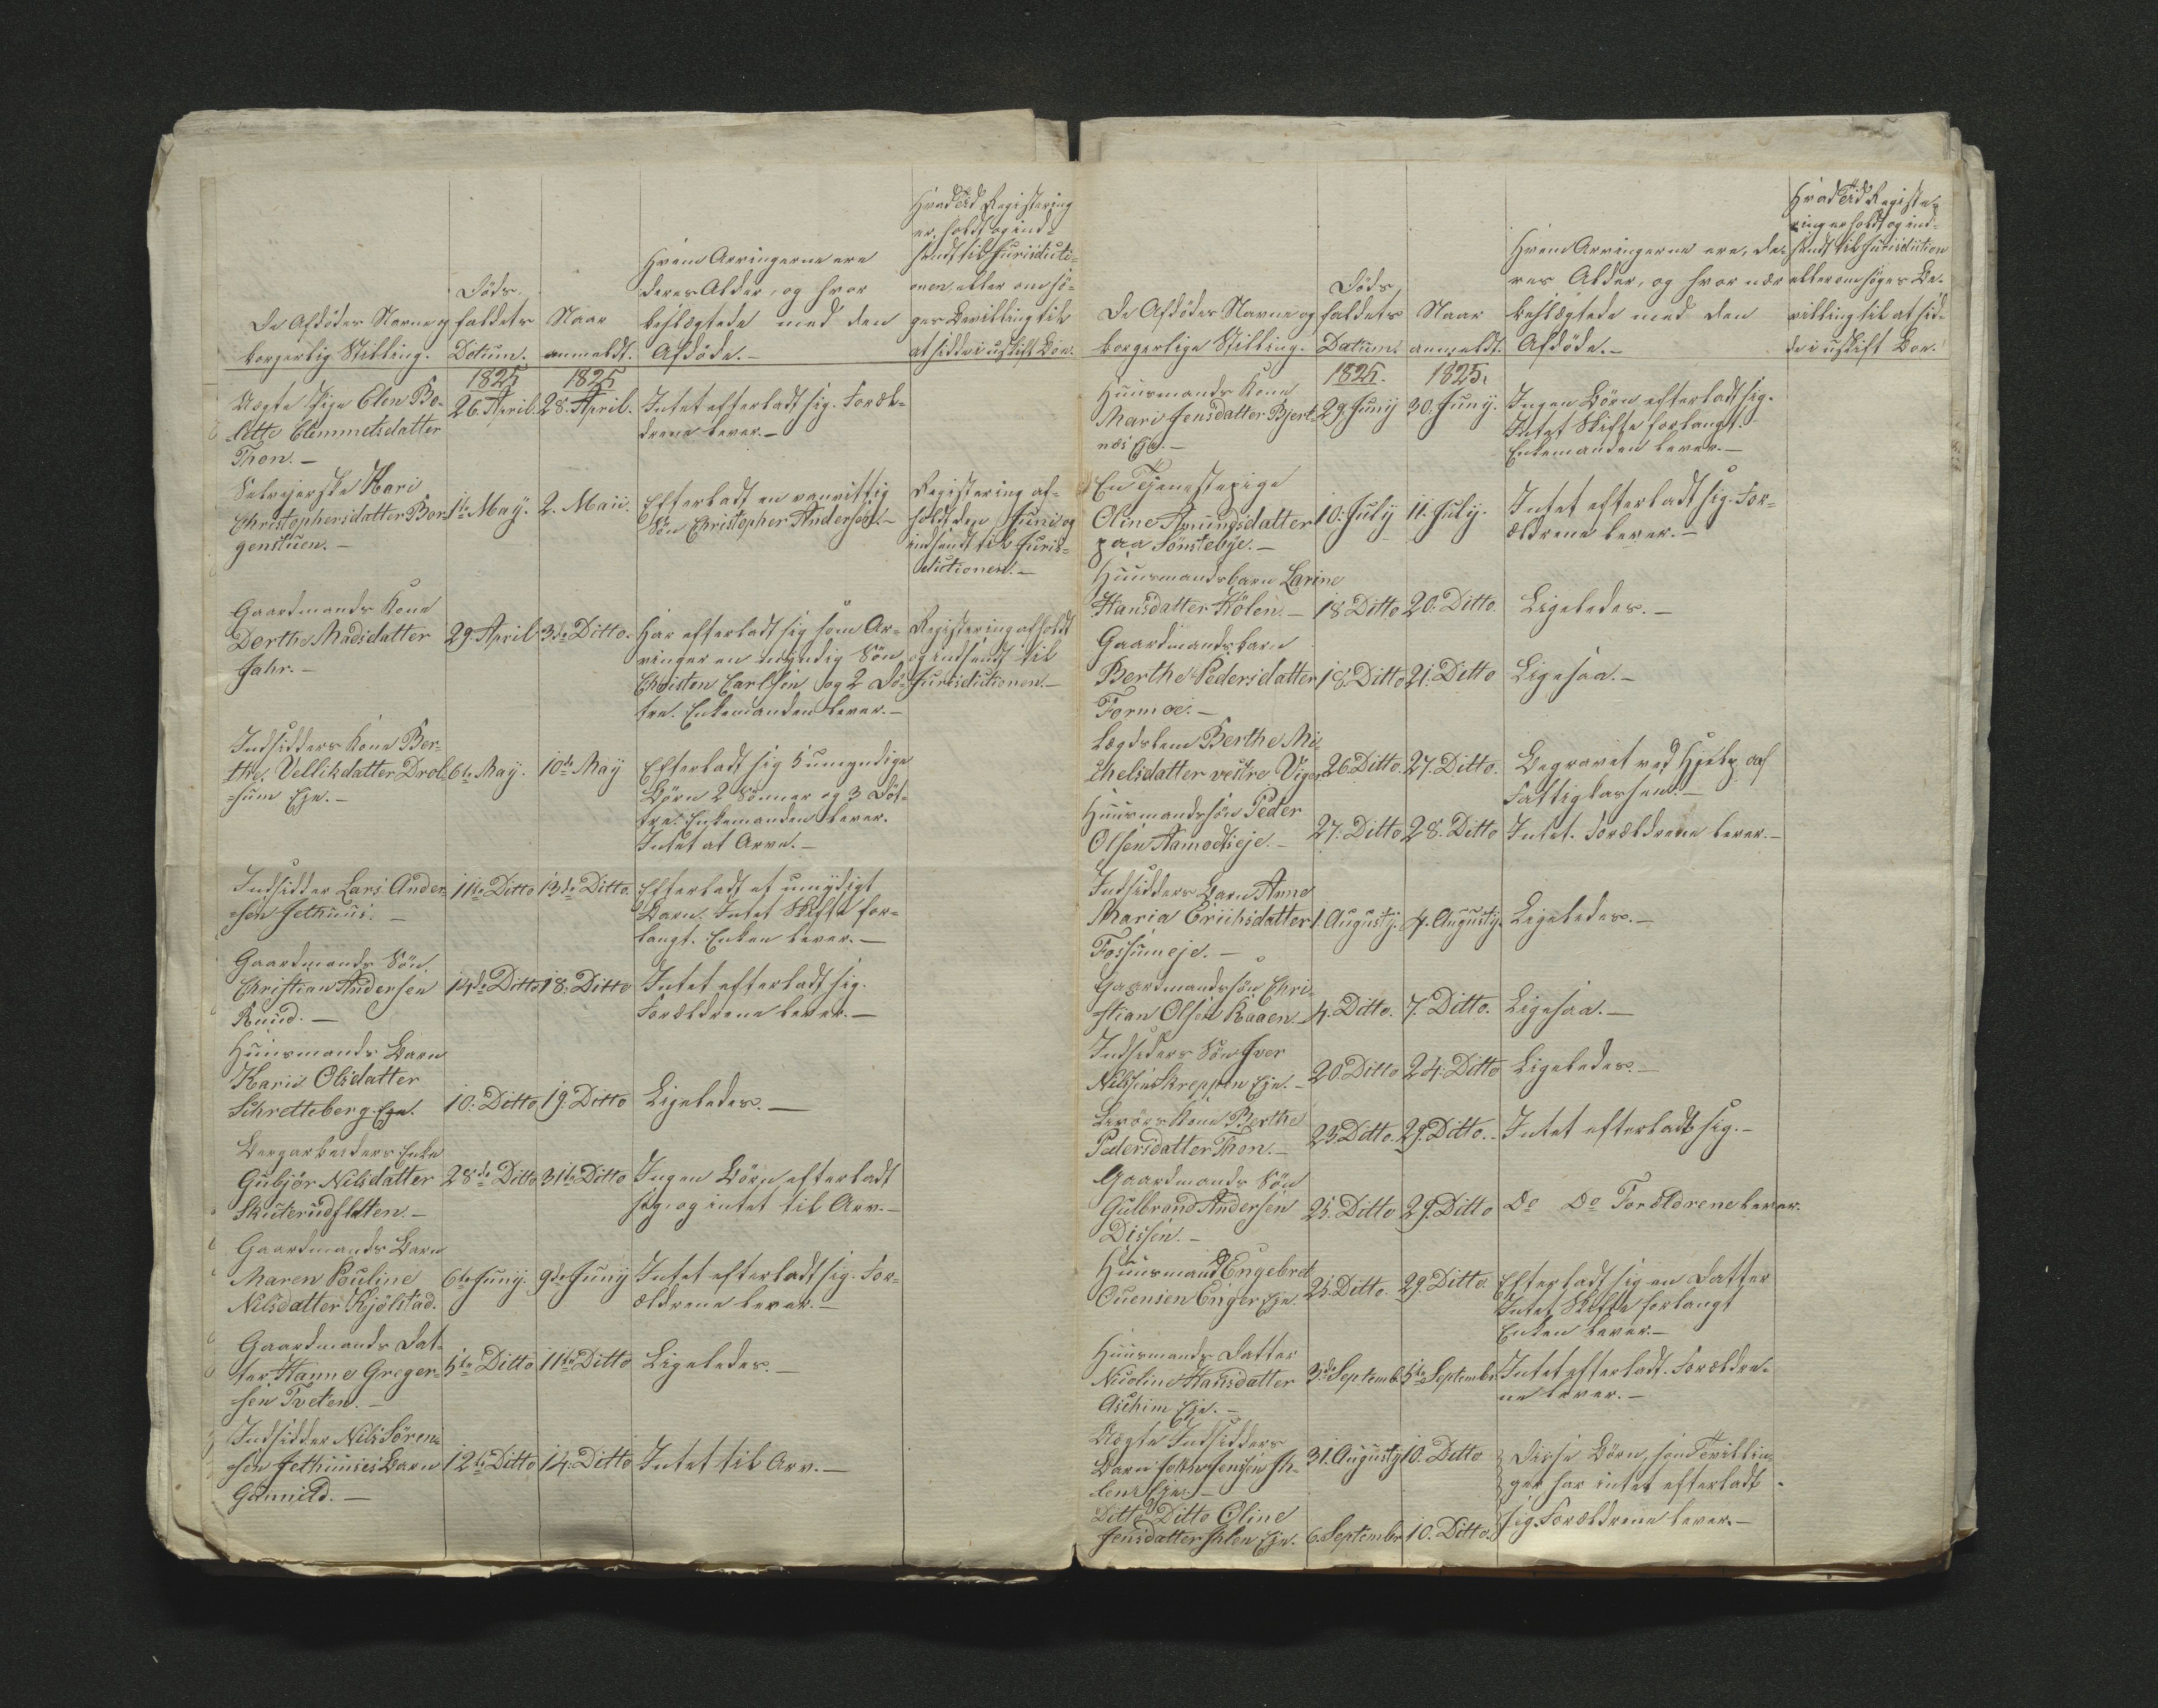 De Afdödes Navne og
borgerlig Stilling.
Döds-
faldets
Datum.
Naar
anmeldt.
Hvem Arvingerne ere
deres Alder, og hvor
beslægtede med den
Afdöde.-
Hvad Tid Registering
er holdt og ind-
sendt til Jurisdicti-
onen, eller om sö-
ges Bevilling til
at sidde i uskift Boe.
1825
1825
Uægte Pige Elen Bo-
lette Clemmetsdatter
Thon.-
26. April.
28. April.
Intet efterladt sig. Foræl-
drene lever.-
Selvejerske Kari
Christophersdatter Bor-
genstuen.-
1te May.
2. Maii.
Efterladt en vanvittig
Sön Christopher Andersen.-
Registering af-
holdt den Juni og
indsendt til Juris-
dictionen.-
Gaardmands Kone
Dorthe Madsdatter
Jahr.-
29. April
3de Ditto.
Har efterladt sig som Ar-
vinger en myndig Sön
Christen Carlsen og 2 Dö-
tre. Enkemanden lever.-
Registering afholdt
og indsendt til
Jurisdictionen.-
Indsidders Kone Ber-
the Vellikdatter Drol-
sum Eje.-
6te May.
10de May
Efterladt sig 5 umyndige
Börn 2 Sönner og 3 Döt-
tre. Enkemanden lever.
Intet at Arve.-
Indsidder Lars Ander-
sen Jethuus.-
11te Ditto
13de Ditto.
Efterladt et umydigt
Barn. Intet Skifte for-
langt. Enken lever.-
Gaardmands Sön
Christian Andersen
Ruud.-
14de Ditto
18. Ditto
Intet efterladt sig.
Forældrene lever.-
Huusmands Barn
Karii Olsdatter
Schretteberg Eje.
10. Ditto
19. Ditto
Ligeledes.-
Bergarbeiders Enke
Gubjör Nilsdatter
Skuterudflatten.-
28de Ditto
31te Ditto
Ingen Börn efterladt
sig, og intet til Arv.-
Gaardmands Barn
Maren Pauline
Nilsdatter Kjölstad.
6te Juny.
9de Juny
Intet efterladt sig. For-
ældrene lever.-
Gaardmands Dat-
ter Hanne Greger-
sen Tveten.-
5te Ditto
11te Ditto
Ligeledes.-
Indsidder Nils Sören-
sen Jethuuses Barn
Gunnild.-
12te Ditto
14. Ditto
Intet til Arv.-
De Afdödes Navne og
borgerlige Stilling.
Döds-
faldets
Datum.
Naar
anmeldt.
Hvem Arvingerne ere, de-
res Alder, og hvor nær
beslægtede med den
Afdöde.-
Hvad Tid Registe-
ring er holdt og ind-
sendt til Jurisdiction
eller om söges Be-
villing til at sid-
de i uskift Boe.
1825.
1825.
Huusmands Kone
Mari Jensdatter Bjert-
næs Eje.-
29. Juny
30. Juny.
Ingen Börn efterladt sig.
Intet Skifte forlangt.
Enkemanden lever.-
En Tjenestepige
Oline Amundsdatter
paa Sönstebye.-
10. July
11. July.
Intet efterladt sig. For-
ældrene lever.-
Huusmandsbarn Larine
Hansdatter Kölen.-
18 Ditto
20. Ditto.
Ligeledes.-
Gaardmandsbarn
Berthe Pedersdatter
Formoe.-
18. Ditto
21. Ditto
Ligesaa.-
Lægdslem Berthe Mi-
chelsdatter vestre Viger
26. Ditto.
27. Ditto.
Begravet ved Hjelp af
Fattigkassen.-
Huusmandssön Peder
Olsen Aamodtseje.-
27. Ditto
28. Ditto
Intet. Forældrene lever.-
Indsidders Barn Anne
Maria Eriksdatter
Fossumeje.-
1. Augusty.
4. Augusty.
Ligeledes.-
Gaardmandssön Chri-
stian Olsen Kaaen.-
4. Ditto.
7. Ditto.
Ligesaa.-
Indsiders Sön Iver
Nilsen Skreppen Eje.-
20. Ditto
24. Ditto
Ligeledes.-
Kone Berthe
Pedersdatter Thon.-
23 Ditto.
29. Ditto.-
Intet efterladt sig.-
Gaardmands Sön
Gulbrand Andersen
Dissen.-
25. Ditto
29. Ditto
Do Do Forældrene lever.
Huusmand Engebret
Ouensen Enger Eje.
25. Ditto.
29. Ditto.
Efterladt sig en Datter
Intet Skifte forlangt
Enken lever.-
Huusmands Datter
Nicoline Hansdatter
Aschim Eje.-
3de Septemb.
5te Septembr.
Intet efterladt. Forældre-
ne lever.-
Uægte Indsidders
Barn Jensen Ih-
len Eje.-
31. Augusty
10. Ditto
Disse Börn, som Tvillin-
ger har intet efterladt
sig. Forældrene lever.-
Ditto Ditto Oline
Jensdatter Ihlen Eje.
6. Septembr
10. Ditto.